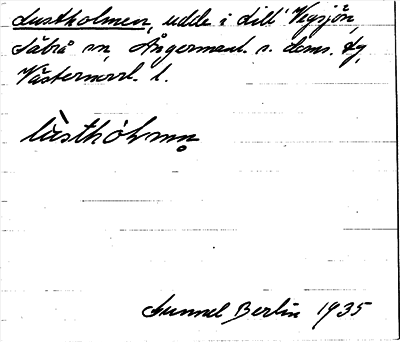 Lustholmen, udde i Lill Vegsjön,
Säbrå sn, Ångermanl. s. doms. dg,
Västernorrl. l.
lùsthólmn̥
Gunnel Berlin 1935